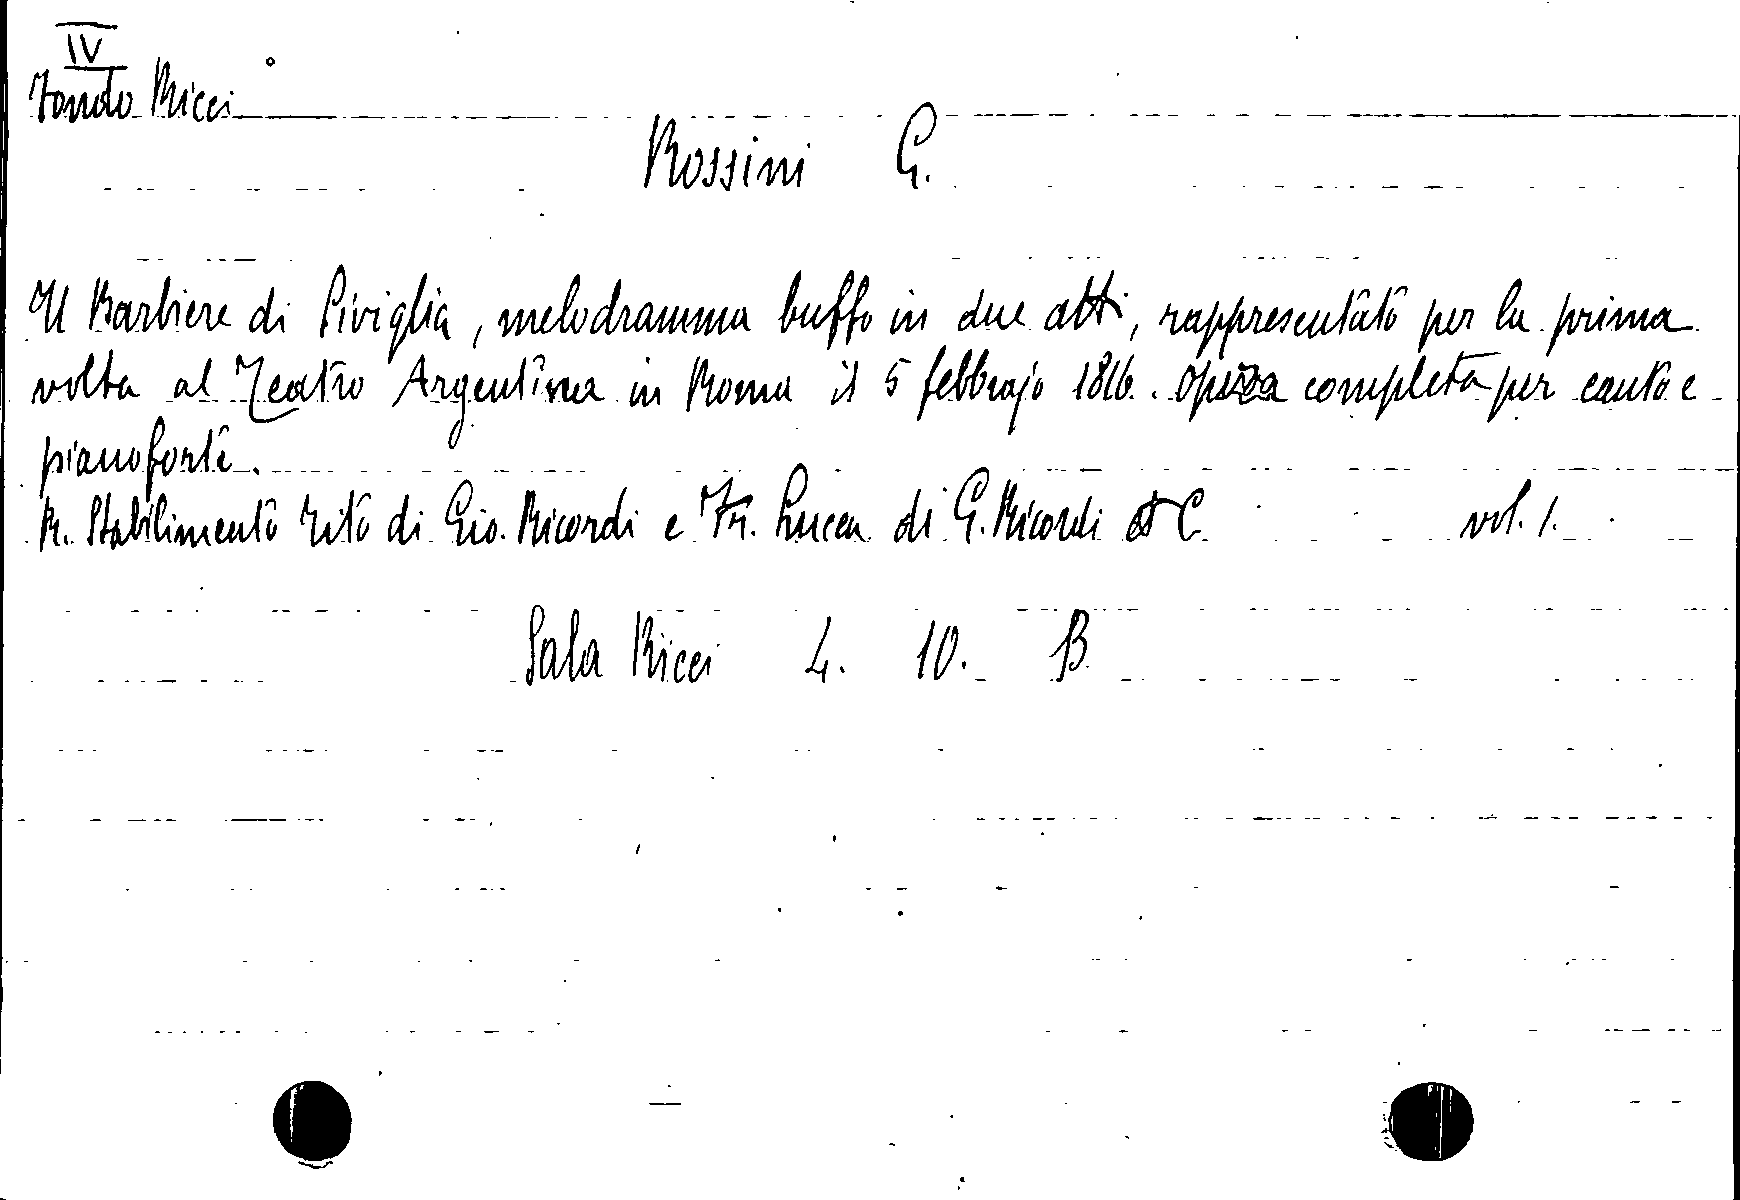 IV
Fondo Ricci
Rossini G.
Il Barbiere di Siviglia, melodramma buffo in due atti, rappresentato per la prima
volta al Teatro Argentina in Roma il 5 febbrajo 1816. Opera completa per canto e
pianoforte.
R. Stabilimento Tito di Gio. Ricordi e Fr. Lucca di G. Ricordi et C. vol. 1.
Sala Ricci 4. 10. B